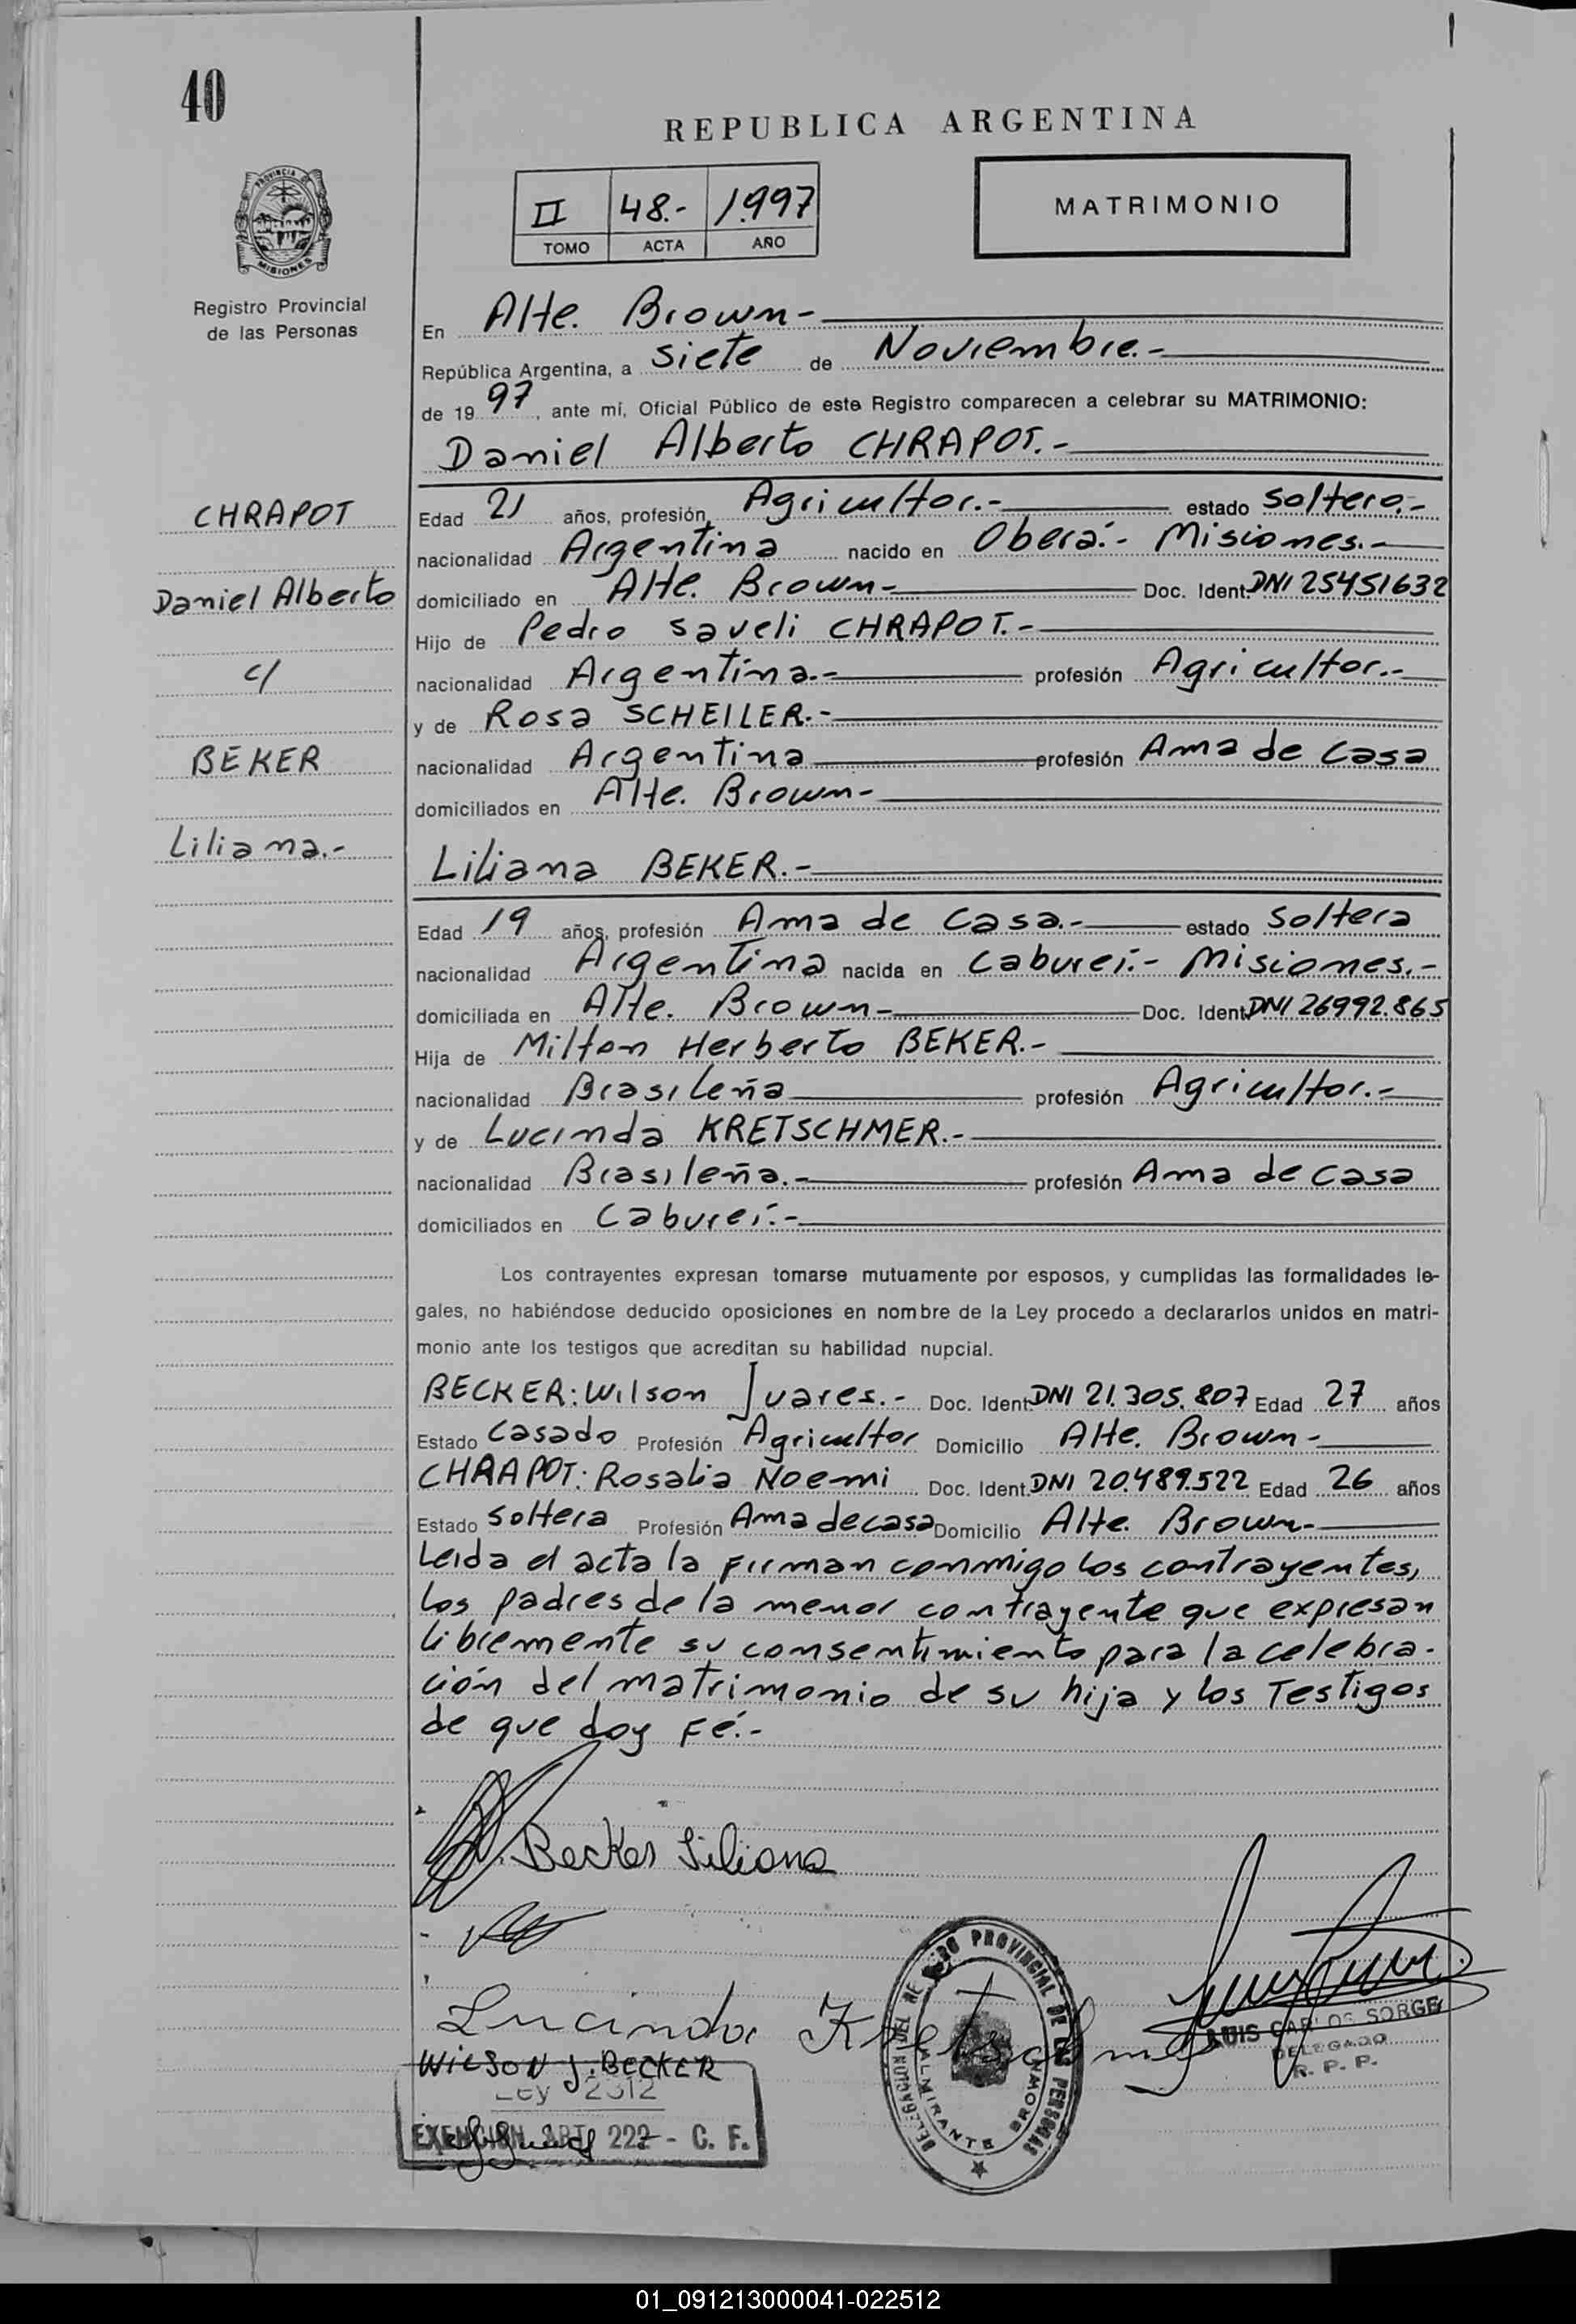 40
REPUBLICA ARGENTINA
II 48.- 1.997
TOMO ACTA AÑO
MATRIMONIO
PROVINCIA DE
MISIONES
Registro Provincial
de las Personas
En Alte. Brown-
República Argentina, a siete de Noviembre.-
de 1997, ante mí, Oficial Público de este Registro comparecen a celebrar su MATRIMONIO:
Daniel Alberto CHRAPOT.-
CHRAPOT
Edad 21 años, profesión Agricultor.- estado soltero.-
nacionalidad Argentina nacido en Oberá.- Misiones.-
Daniel Alberto
domiciliado en Alte. Brown- Doc. Ident. DNI 25451632
Hijo de Pedro Saveli CHRAPOT.-
c/
nacionalidad Argentina.- profesión Agricultor.-
y de Rosa SCHEILER.-
BEKER
nacionalidad Argentina profesión Ama de casa
domiciliados en Alte. Brown-
Liliana.-
Liliana BEKER.-
Edad 19 años, profesión Ama de casa.- estado soltera
nacionalidad Argentina nacida en Cabureí.- Misiones.-
domiciliada en Alte. Brown- Doc. Ident. DNI 26992.865
Hija de Milton Herberto BEKER.-
nacionalidad Brasileña profesión Agricultor.-
y de Lucinda KRETSCHMER.-
nacionalidad Brasileña.- profesión Ama de casa
domiciliados en Cabureí.-
Los contrayentes expresan tomarse mutuamente por esposos, y cumplidas las formalidades le-
gales, no habiéndose deducido oposiciones en nombre de la Ley procedo a declararlos unidos en matri-
monio ante los testigos que acreditan su habilidad nupcial.
BECKER: Wilson Juares.- Doc. Ident. DNI 21.305.807 Edad 27 años
Estado Casado Profesión Agricultor Domicilio Alte. Brown-
CHRAPOT: Rosalia Noemi Doc. Ident. DNI 20.489.522 Edad 26 años
Estado soltera Profesión Ama de casa Domicilio Alte. Brown-
Leida el acta la firman conmigo los contrayentes,
los padres de la menor contrayente que expresan
libremente su consentimiento para la celebra-
ción del matrimonio de su hija y los Testigos
de que doy Fé.-
Becker Liliana
Lucinda Kretschmer
WiLSON J. BECKER
Ley 2512
EXENCION ART. 222 - C. F.
DELEGACION DEL REGISTRO PROVINCIAL DE LAS PERSONAS
ALMIRANTE BROWN
LUIS CARLOS SORGE
DELEGADO
R. P. P.
01_091213000041-022512